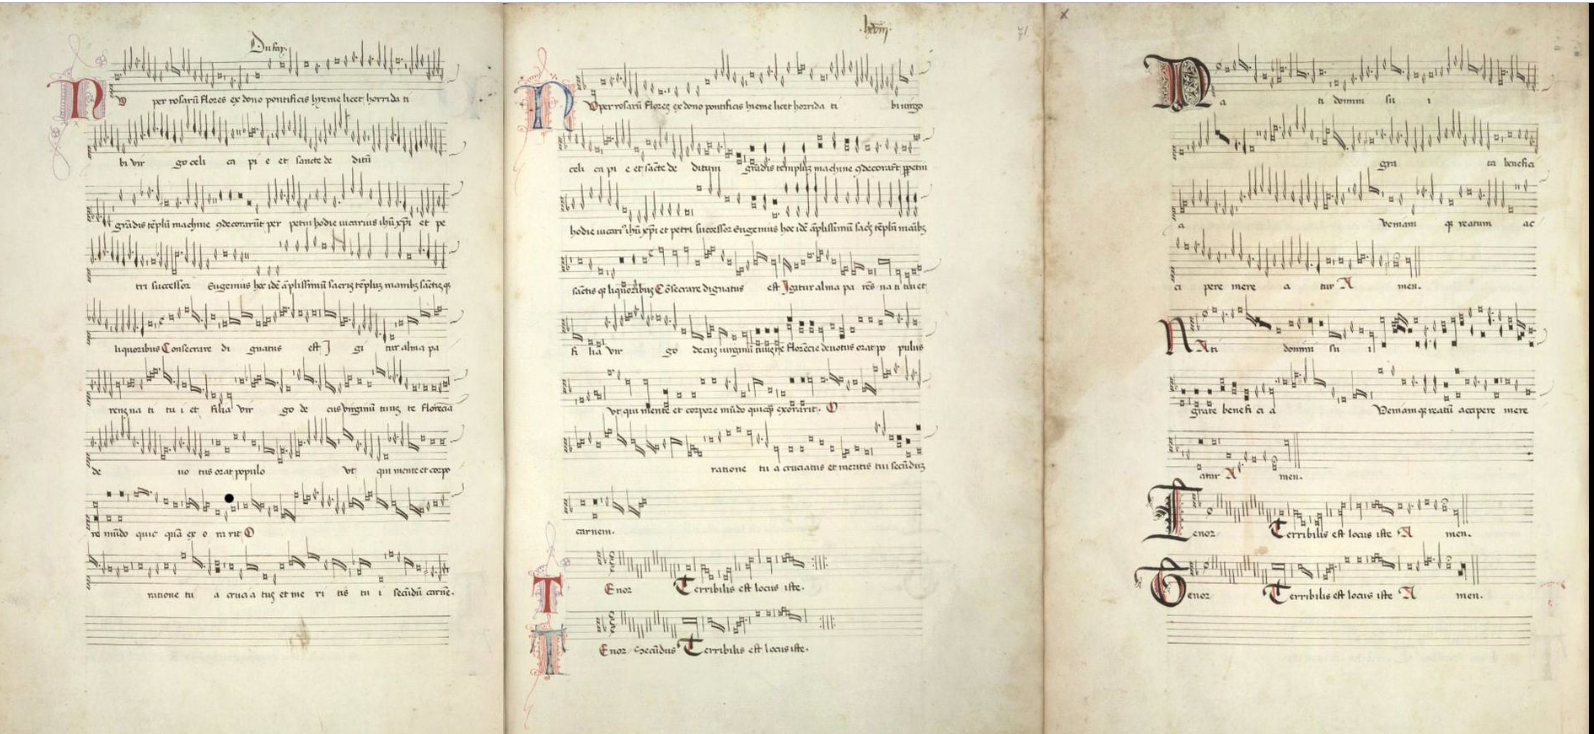 Dufay.
Nuper rosarū flores ex dono pontificis hyeme licet horrida ti
bi vir go celi ca pi e et sancte de ditū
grādis tēplū machine ꝯdecorarūt per petui hodie vicarius ihū xp̄i et pe
tri successor Eugenius hoc idē āplissimū sacris tēpluꝫ manibꝫ sāctisqꝫ
liquoribus Consecrare di gnatus est I gi tur alma pa
rens na ti tu i et filia vir go de cus virginū tuuꝫ te florēcie
de uo tus orat populo vt qui mente et corpo
re mūdo quic quā ex o ra rit O
ratione tu a crucia tuꝫ et me ri tis tu i secūdū carnē.
.lxviij.
71
Nuper rosarū flores ex dono pontificis hyeme licet horrida ti bi uirgo
celi ca pi e et sācte de ditum grādis templuꝫ machine ꝯdecorarūt ꝑpetui
hodie uicariꝰ ihū xp̄i et petri successor Eugenius hoc idē āplissimū sacꝫ tēplū maibꝫ
sāctis qꝫ liquoribuꝫ Cōsecrare dignatus est Igitur alma pa rēs na ti tui et
fi lia vir go decuꝫ uirginū tuuꝫ te florēcie deuotus orat po pulus
vt qui mente et corpore mūdo quicqꝫ exorarit. O
ratione tu a cruciatus et meritis tui secūduꝫ
carnem.
TEnor Terribilis est locus iste.
TEnor Secūdus Terribilis est locus iste.
x
Na ti domini su i
gra ta benefici
a Veniam qꝫ reatum ac
ci pere mere a tur A men.
NAti domini su i
grate benefi ci a Veniamqꝫ reatū accipere mere
atur A men.
Tenor Terribilis est locus iste A men.
Tenor Terribilis est locus iste A men.